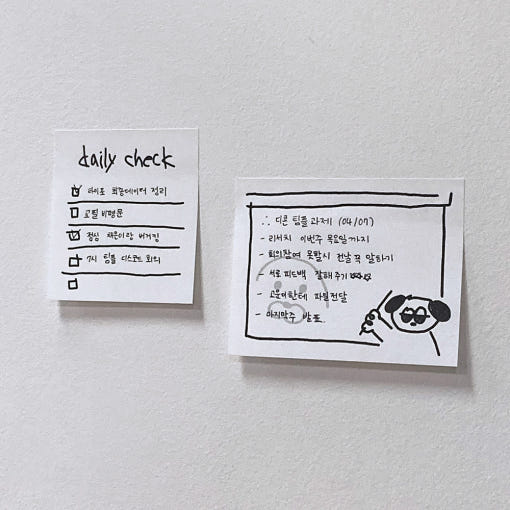 daily check
타이포 최종데이터 정리
교필 비평문
점심 태은이랑 버거킹
7시 팀플 디스코드 회의
∴ 디콘 팀플 과제 (04/07)
- 리서치 이번주 목요일까지
- 회의참여 못할시 전날 꼭 말하기
- 서로 피드백 잘해주기
- 파일전달
- 마지막주 발표.